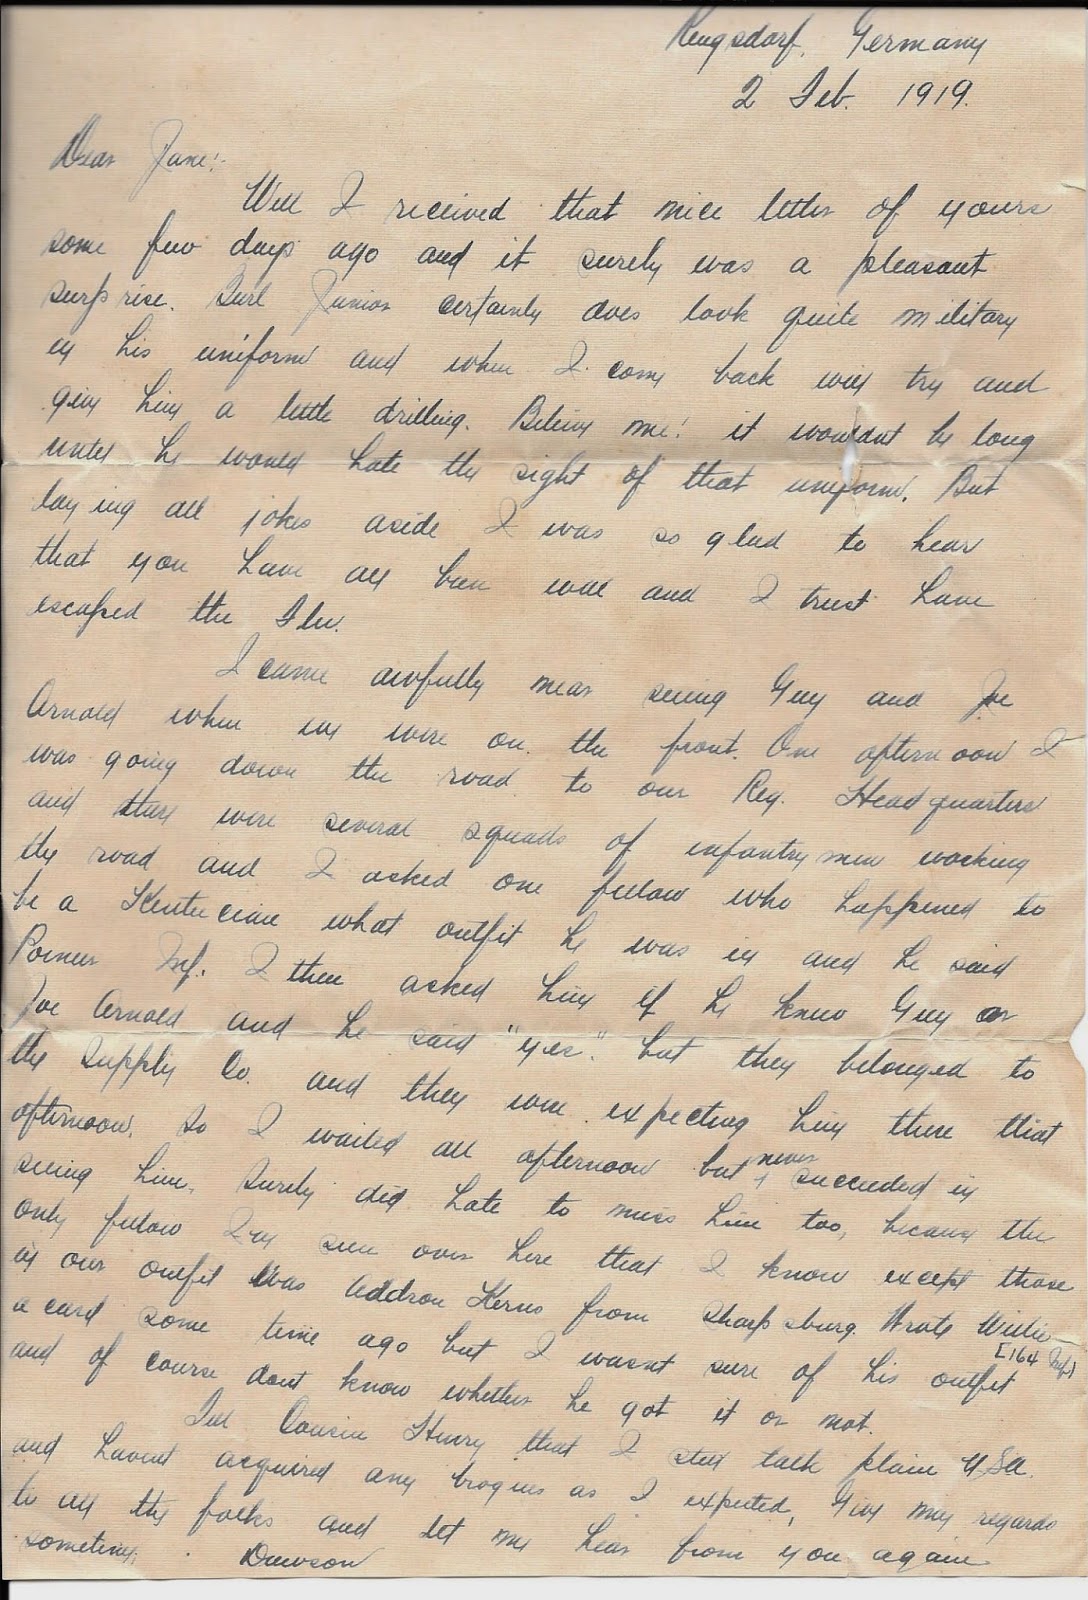 Rengsdorf, Germany
2 Feb. 1919.
Dear Jane:-
Well I received that nice letter of yours
some few days ago and it surely was a pleasant
surprise. Burl Junior certainly does look quite military
in his uniform and when I come back will try and
give him a little drilling. Believe me! it wouldnt be long
until he would hate the sight of that uniform. But
laying all jokes aside I was so glad to hear
that you have all been well and I trust have
escaped the Flu.
I came awfully near seeing Guy and Joe
Arnold when we were on the front. One afternoon I
was going down the road to our Reg. Headquarters
and there were several squads of infantrymen working
the road and I asked one fellow who happened to
be a Kentuckian what outfit he was in and he said
Poineer Inf. I then asked him if he knew Guy or
Joe Arnold and he said "yes". but they belonged to
the Supply Co. and they were expecting him there that
afternoon. So I waited all afternoon but never succeeded in
seeing him. Surely did hate to miss him too, because the
only fellow I've seen over here that I know except those
in our outfit was Addron Kerns from Sharpsburg. Wrote Willie
a card some time ago but I wasnt sure of his outfit [164 Inf]
and of course dont know whether he got it or not.
Tell Cousin Henry that I still talk plain USA.
and havent acquired any brogues as I expected, Give my regards
to all the folks and let me hear from you again
sometime. Dawson